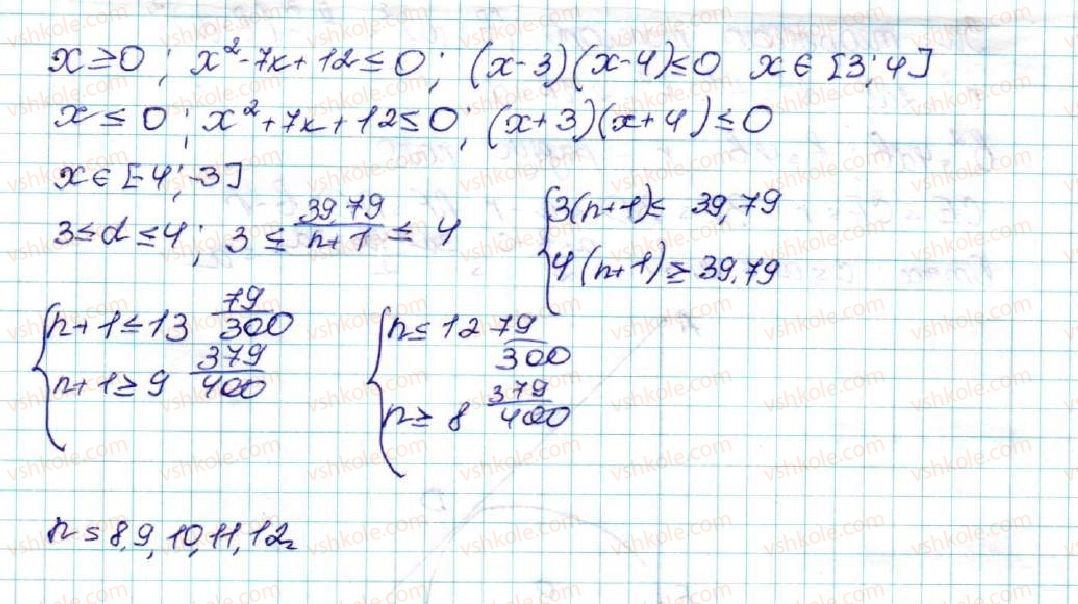 x ≥ 0 ; x² - 7x + 12 ≤ 0 ; (x - 3)(x - 4) ≤ 0 x ∈ [3; 4]
x ≤ 0 ; x² + 7x + 12 ≤ 0 ; (x + 3)(x + 4) ≤ 0
x ∈ [-4; -3]
3 ≤ d ≤ 4 ; 3 ≤ 39,79/(n+1) ≤ 4 { 3(n+1) ≤ 39,79
4(n+1) ≥ 39,79
{ n+1 ≤ 13 79/300 { n ≤ 12 79/300
n+1 ≥ 9 379/400 n ≥ 8 379/400
n = 8, 9, 10, 11, 12.
vshkole.com